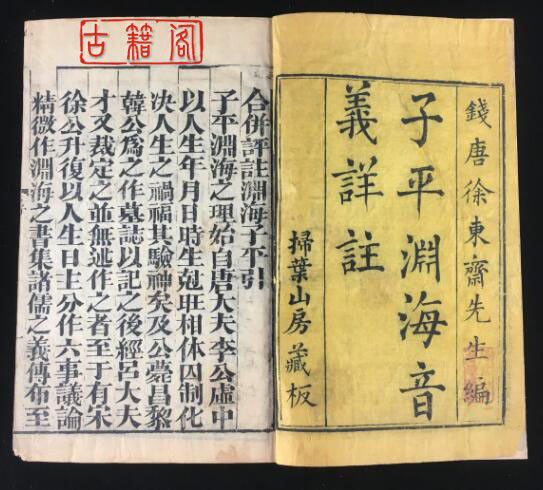 錢唐徐東齋先生編
子平淵海音
義詳註
掃葉山房藏板
古籍阁
合併評註淵海子平引
子平淵海之理始自唐大夫李公虛中
以人生年月日時生尅旺相休囚制化
决人生之禍福其驗神矣及公薨昌黎
韓公爲之作墓誌以記之後經呂大夫
才又裁定之並無述作之者至于有宋
徐公升復以人生日主分作六事議論
精微作淵海之書集諸儒之義傳布至